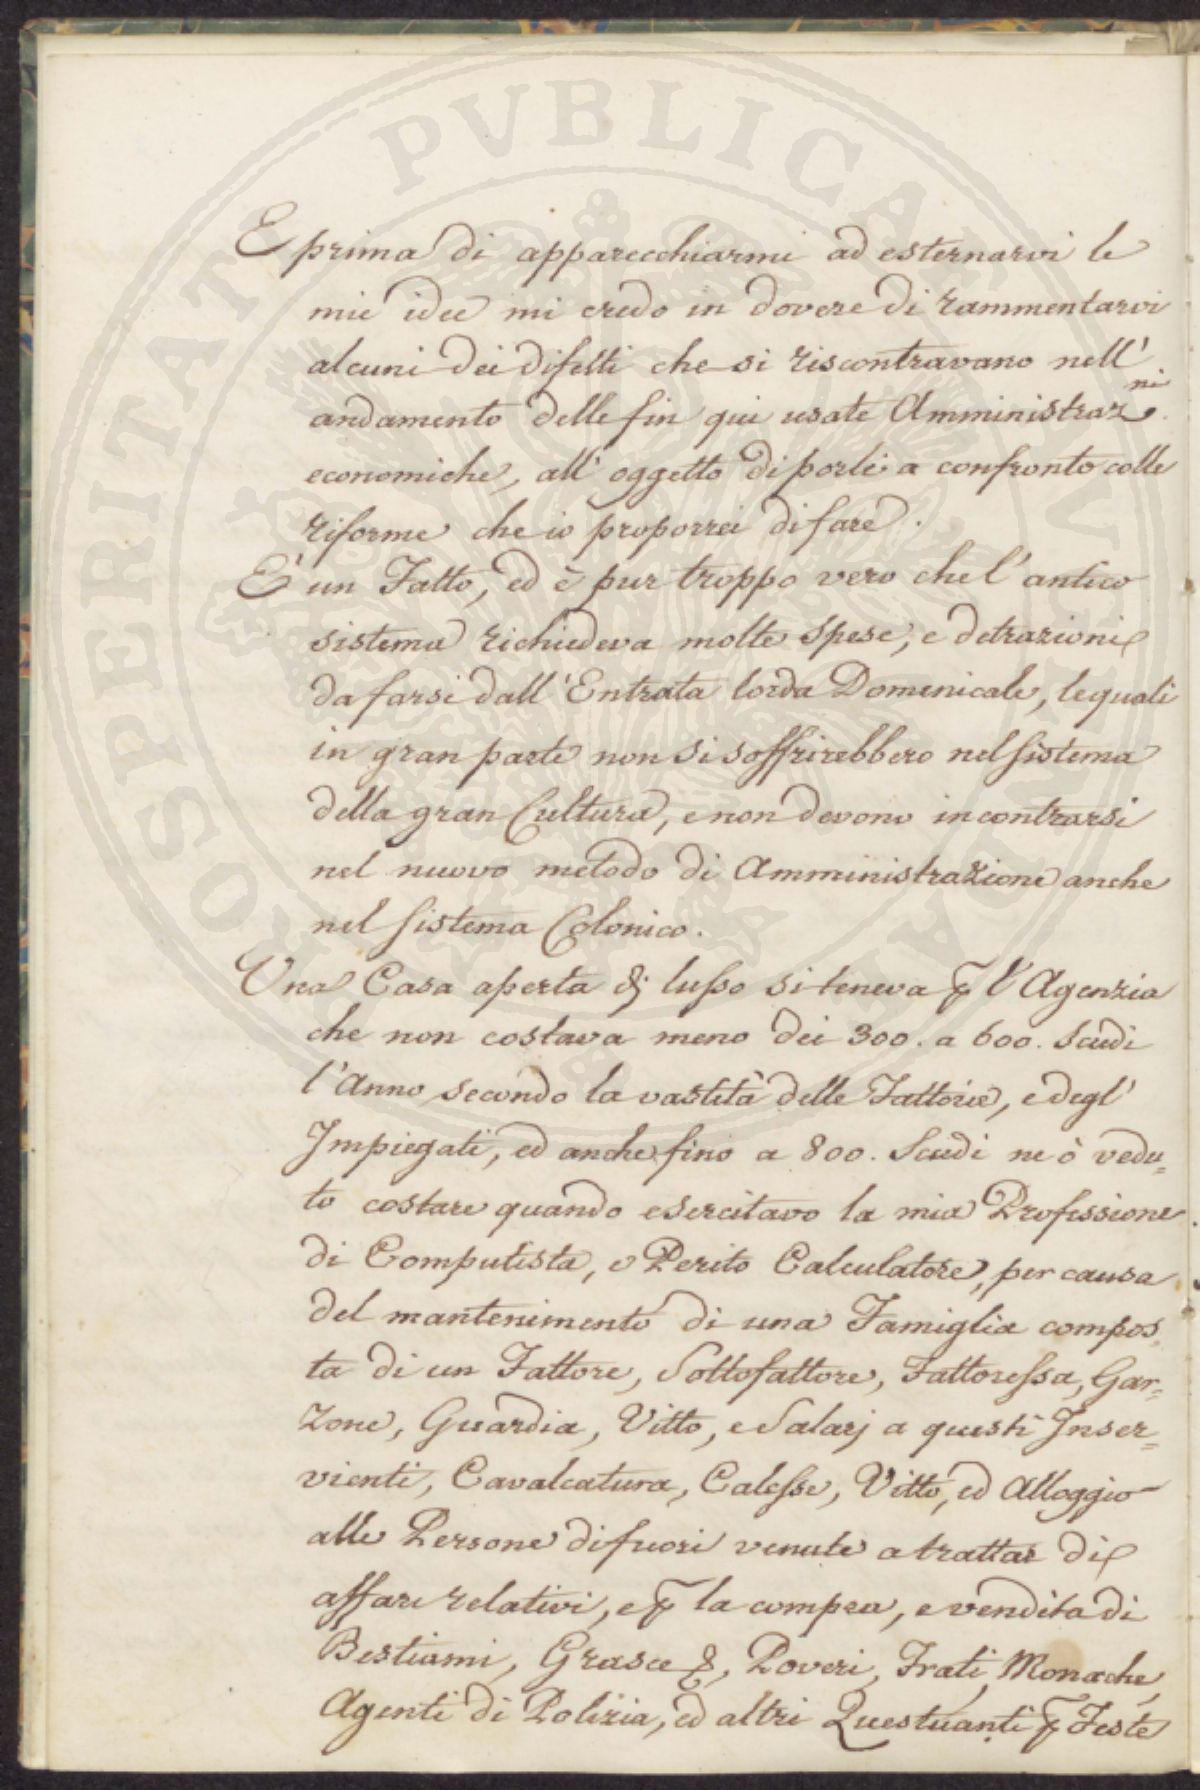 E prima di apparecchiarmi ad esternarvi le
mie idee mi credo in dovere di rammentarvi
alcuni dei difetti che si riscontravano nell'
andamento delle fin qui usate Amministraz.ni
economiche, all'oggetto di porli a confronto colle
riforme che io proporrei di fare.
E' un Fatto, ed è pur troppo vero che l'antico
sistema richiedeva molte spese, e detrazioni
da farsi dall'Entrata lorda Domenicale, le quali
in gran parte non si soffrirebbero nel sistema
della gran Cultura, e non devono incontrarsi
nel nuovo metodo di Amministrazione anche
nel sistema Colonico.
Una Casa aperta di lusso si teneva p l'Agenzia
che non costava meno dei 300. a 600. Scudi
l'Anno secondo la vastità delle Fattorie, e degl'
Impiegati, ed anche fino a 800. Scudi ne ò vedu=
to costare quando esercitavo la mia Professione
di Computista, e Perito Calculatore, per causa
del mantenimento di una Famiglia compos
ta di un Fattore, Sottofattore, Fattoressa, Gar=
zone, Guardia, Vitto, e Salarj a questi Inser=
vienti, Cavalcatura, Calesse, Vitto, ed Alloggio
alle Persone di fuori venute a trattar di
affari relativi, e p la compra, e vendita di
Bestiami, Grasce &, Poveri, Frati, Monache,
Agenti di Polizia, ed altri Questuanti p Feste
PROSPERITATI PVBLICAE AVGENDAE